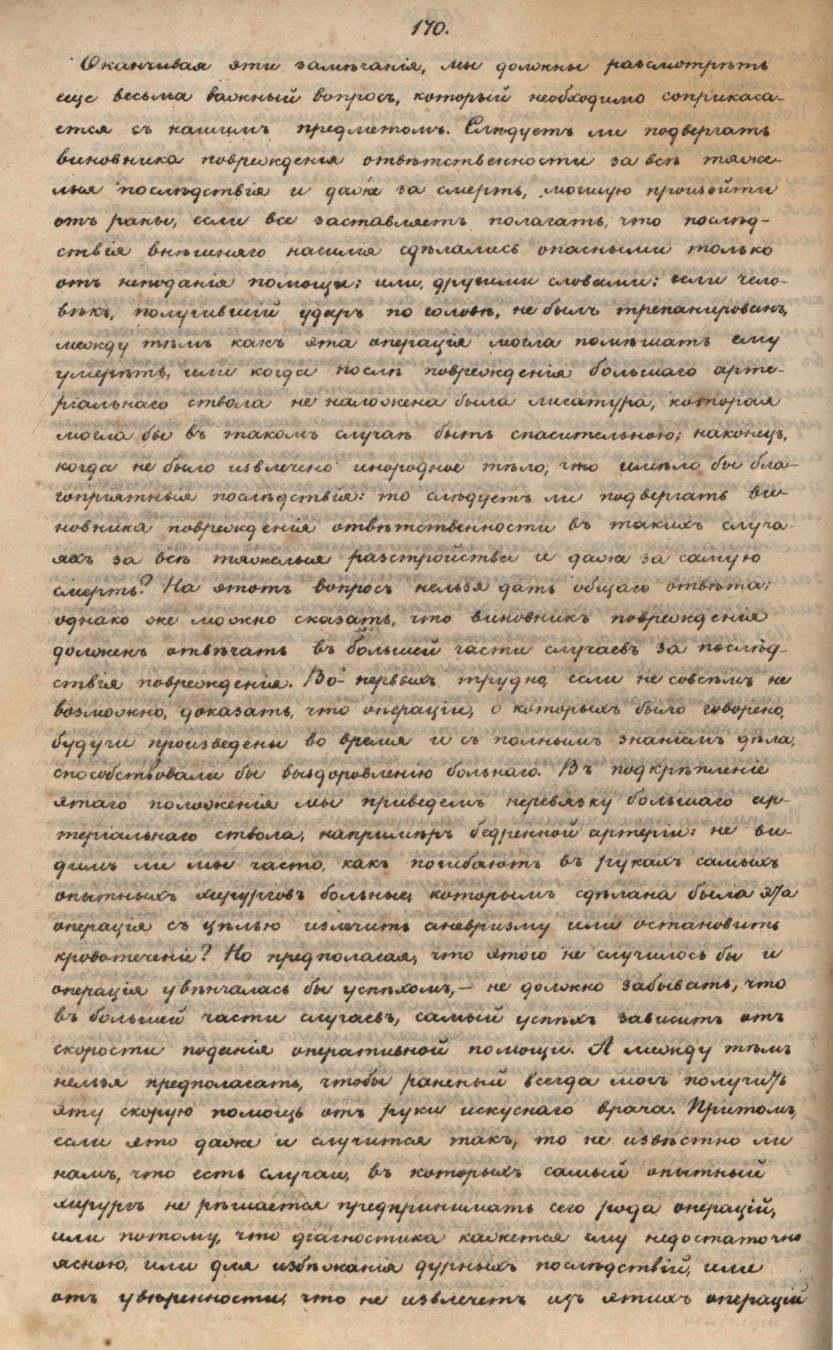 170.
Оканчивая эти замѣчанія, мы должны разсмотрѣть
еще весьма важный вопросъ, который необходимо соприкаса-
ется съ нашимъ предметомъ. Слѣдуетъ ли подвергать
виновника поврежденія отвѣтственности за всѣ тяже-
лыя послѣдствія и даже за смерть, могшую произойти
отъ раны, если все заставляетъ полагать, что послѣд-
ствія внѣшняго насилія сдѣлались опасными только
отъ неподанія помощи; или, другими словами: если чело-
вѣкъ, получившій ударъ по головѣ, не былъ трепанированъ,
между тѣмъ какъ эта операція могла помѣшать ему
умерѣть, или когда послѣ поврежденія большаго арте-
ріальнаго ствола не наложена была лигатура, которая
могла бы въ такомъ случаѣ быть спасительною; наконецъ,
когда не было извлечено инородное тѣло, что имѣло бы бла-
гопріятныя послѣдствія: то слѣдуетъ ли подвергать ви-
новника поврежденія отвѣтственности въ такихъ случа-
яхъ за всѣ тяжелыя разстройства и даже за самую
смерть? На этотъ вопросъ нельзя дать общаго отвѣта;
однако же можно сказать, что виновникъ поврежденія
долженъ отвѣчать въ большей части случаевъ за послѣд-
ствія поврежденія. Во-первыхъ трудно, если не совсѣмъ не
возможно, доказать, что операціи, о которыхъ было говорено,
будучи произведены во время и съ полнымъ знаніемъ дѣла,
способствовали бы выздоровленію больнаго. Въ подкрѣпленіе
этаго положенія мы приведемъ перевязку большаго ар-
теріальнаго ствола, напримѣръ бедренной артеріи: не ви-
димъ ли мы часто, какъ погибаютъ въ рукахъ самыхъ
опытныхъ хирурговъ больные, которымъ сдѣлана была эта
операція съ цѣлью излечить аневризму или остановить
кровотеченіе? Но предполагая, что этого не случилось бы и
операція увѣнчалась бы успѣхомъ, — не должно забывать, что
въ большей части случаевъ, самый успѣхъ зависитъ отъ
скорости поданія оперативной помощи. А между тѣмъ
нельзя предполагать, чтобы раненый всегда могъ получить
эту скорую помощь отъ руки искуснаго врача. Притомъ,
если это даже и случится такъ, то не извѣстно ли
намъ, что есть случаи, въ которыхъ самый опытный
хирургъ не рѣшается предпринимать сего рода операцій,
или потому, что діагностика кажется ему недостаточно
ясною, или для избѣжанія дурныхъ послѣдствій, или
отъ увѣренности, что не извлечетъ изъ этихъ операцій